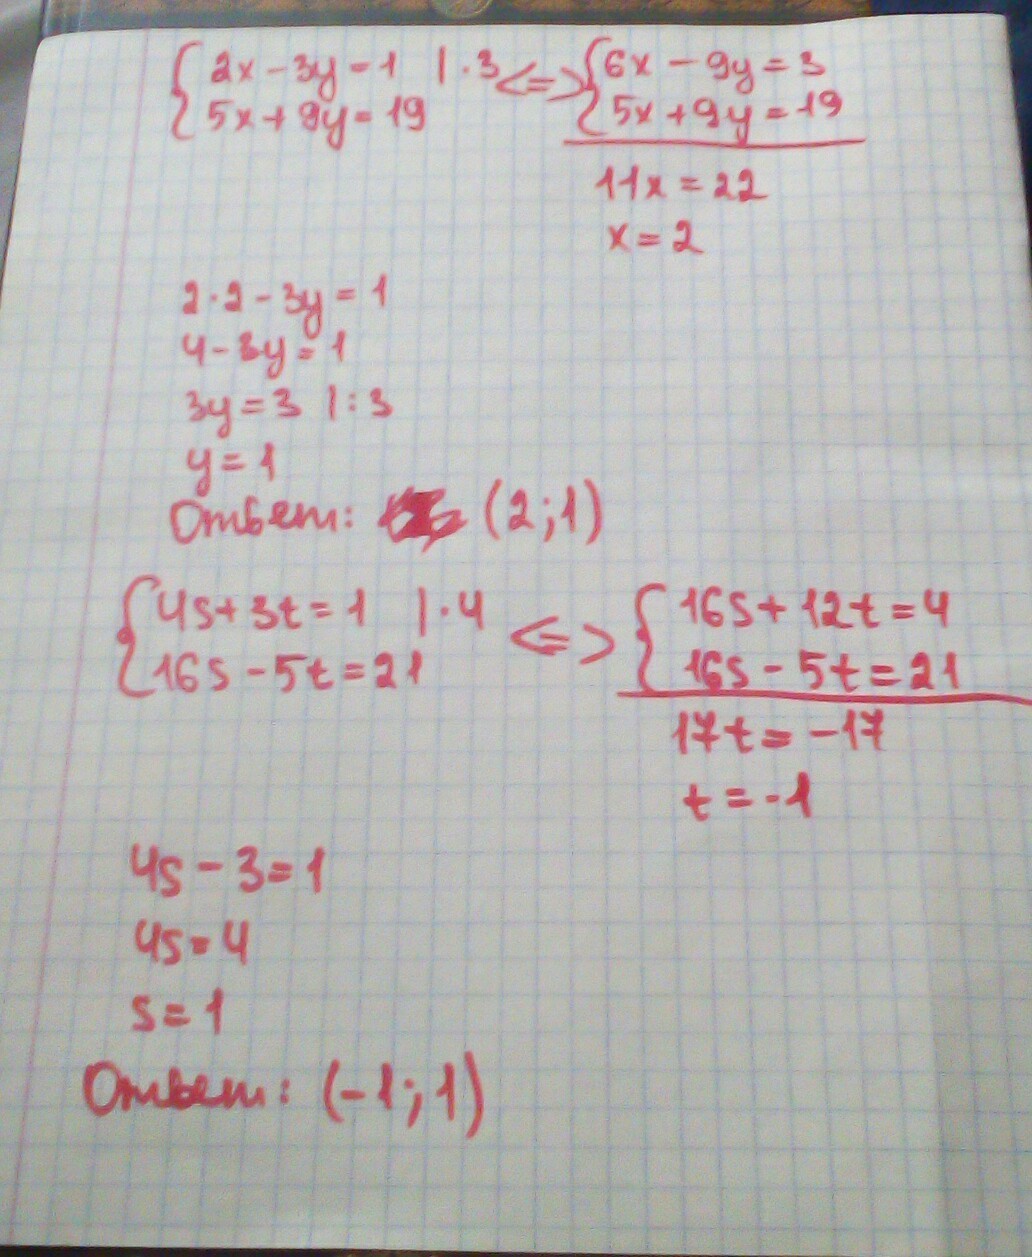 {2x - 3y = 1 | · 3 <=> {6x - 9y = 3
5x + 9y = 19 5x + 9y = 19
11x = 22
x = 2
2 · 2 - 3y = 1
4 - 3y = 1
3y = 3 | : 3
y = 1
Ответ: (2; 1)
{4s + 3t = 1 | · 4 <=> {16s + 12t = 4
16s - 5t = 21 16s - 5t = 21
17t = -17
t = -1
4s - 3 = 1
4s = 4
s = 1
Ответ: (-1; 1)